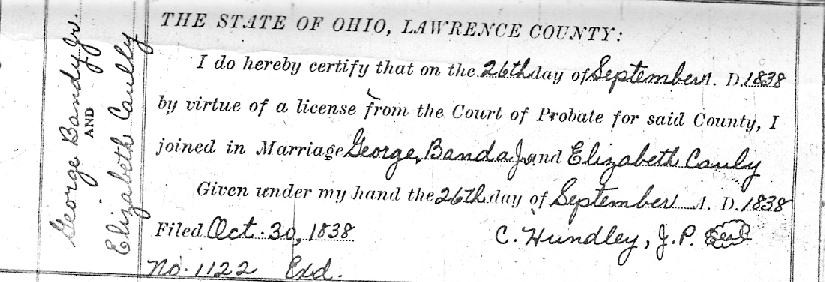 George Bandy Jr.
AND
Elizabeth Caully
THE STATE OF OHIO, LAWRENCE COUNTY:
I do hereby certify that on the 26th day of September A. D. 1838
by virtue of a license from the Court of Probate for said County, I
joined in Marriage George Banda Jr. and Elizabeth Cauly
Given under my hand the 26th day of September A. D. 1838
Filed Oct. 30, 1838 C. Hundley, J.P. Seal
No. 1122 Exd.